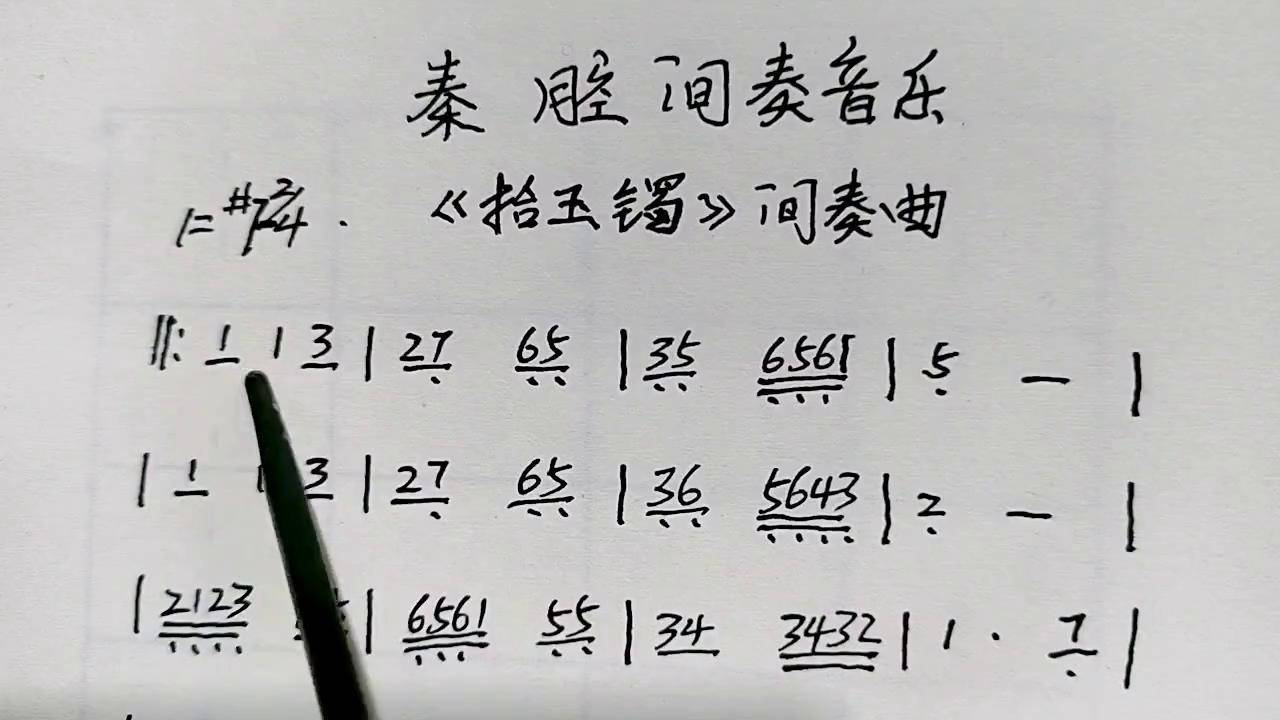 秦腔间奏音乐
1=#F 2/4 《拾玉镯》间奏曲
‖: 1 1 3 | 27 65 | 35 6561 | 5 — |
| 1 3 | 27 65 | 36 5643 | 2 — |
| 2123 | 6561 55 | 34 3432 | 1 · 7 |